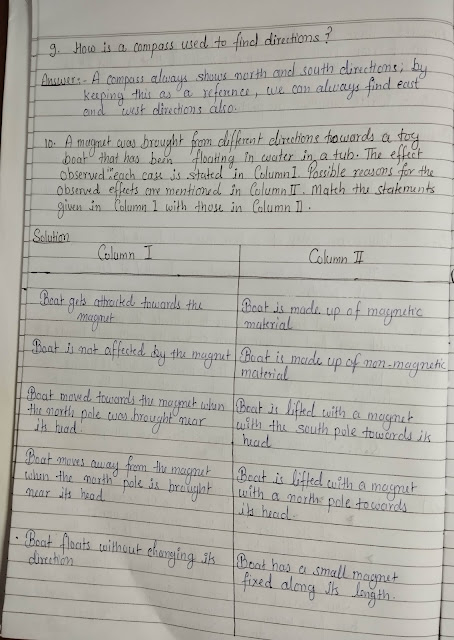 9. How is a compass used to find directions?
Answer:- A compass always shows north and south directions; by
keeping this as a reference, we can always find east
and west directions also.
10. A magnet was brought from different directions towards a toy
boat that has been floating in water in a tub. The effect
observed in each case is stated in Column I. Possible reasons for the
observed effects are mentioned in Column II. Match the statements
given in Column I with those in Column II.
Solution
Column I
Column II
Boat gets attracted towards the
magnet
Boat is made up of magnetic
material
Boat is not affected by the magnet
Boat is made up of non-magnetic
material
Boat moved towards the magnet when
the north pole was brought near
its head
Boat is lifted with a magnet
with the south pole towards its
head
Boat moves away from the magnet
when the north pole is brought
near its head
Boat is lifted with a magnet
with a north pole towards
its head.
Boat floats without changing its
direction
Boat has a small magnet
fixed along its length.